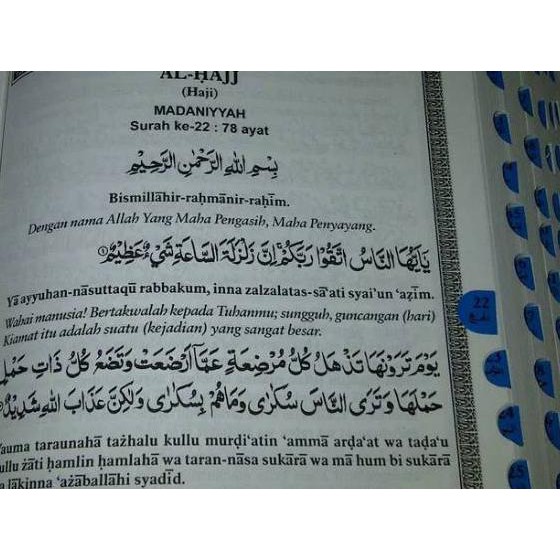 AL-ḤAJJ
(Haji)
MADANIYYAH
Surah ke-22 : 78 ayat
بِسْمِ اللّٰهِ الرَّحْمٰنِ الرَّحِيْمِ
Bismillāhir-raḥmānir-raḥīm.
Dengan nama Allah Yang Maha Pengasih, Maha Penyayang.
يٰٓاَيُّهَا النَّاسُ اتَّقُوْا رَبَّكُمْ ۚاِنَّ زَلْزَلَةَ السَّاعَةِ شَيْءٌ عَظِيْمٌ ١
Yā ayyuhan-nāsuttaqū rabbakum, inna zalzalatas-sā‘ati syai'un ‘aẓīm.
Wahai manusia! Bertakwalah kepada Tuhanmu; sungguh, guncangan (hari)
Kiamat itu adalah suatu (kejadian) yang sangat besar.
يَوْمَ تَرَوْنَهَا تَذْهَلُ كُلُّ مُرْضِعَةٍ عَمَّآ اَرْضَعَتْ وَتَضَعُ كُلُّ ذَاتِ حَمْلٍ
حَمْلَهَا وَتَرَى النَّاسَ سُكٰرٰى وَمَا هُمْ بِسُكٰرٰى وَلٰكِنَّ عَذَابَ اللّٰهِ شَدِيْدٌ
auma taraunahā tażhalu kullu murḍi‘atin ‘ammā arḍa‘at wa taḍa‘u
ullu żāti ḥamlin ḥamlahā wa taran-nāsa sukārā wa mā hum bi sukārā
lākinna ‘ażāballāhi syadīd.
22